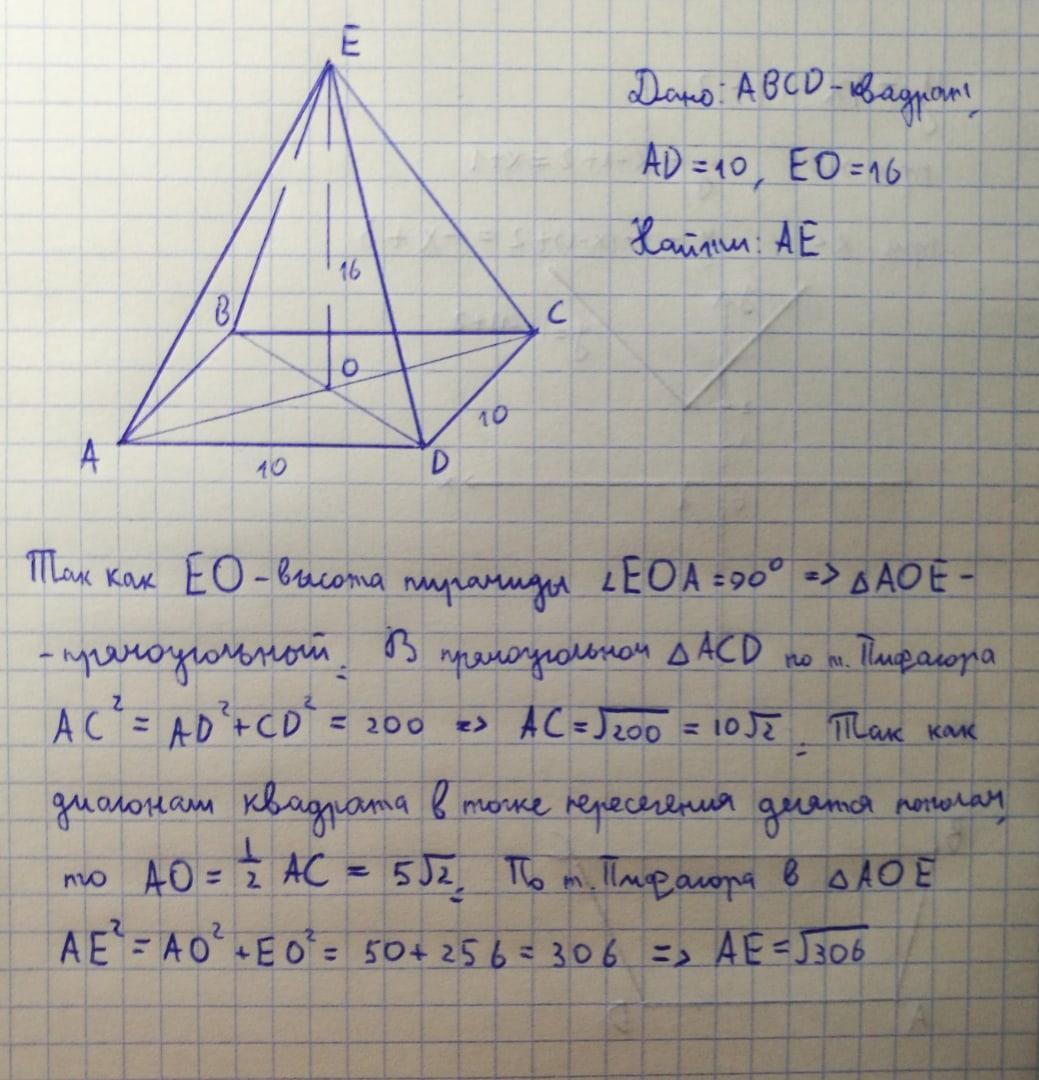 E
Дано: ABCD - квадрат,
AD = 10, EO = 16
Найти: AE
16
B
C
O
10
A
10
D
Так как EO - высота пирамиды ∠EOA = 90° => △AOE -
- прямоугольный. В прямоугольном △ACD по т. Пифагора
AC² = AD² + CD² = 200 => AC = √200 = 10√2. Так как
диагонали квадрата в точке пересечения делятся пополам,
то AO = 1/2 AC = 5√2. По т. Пифагора в △AOE
AE² = AO² + EO² = 50 + 256 = 306 => AE = √306